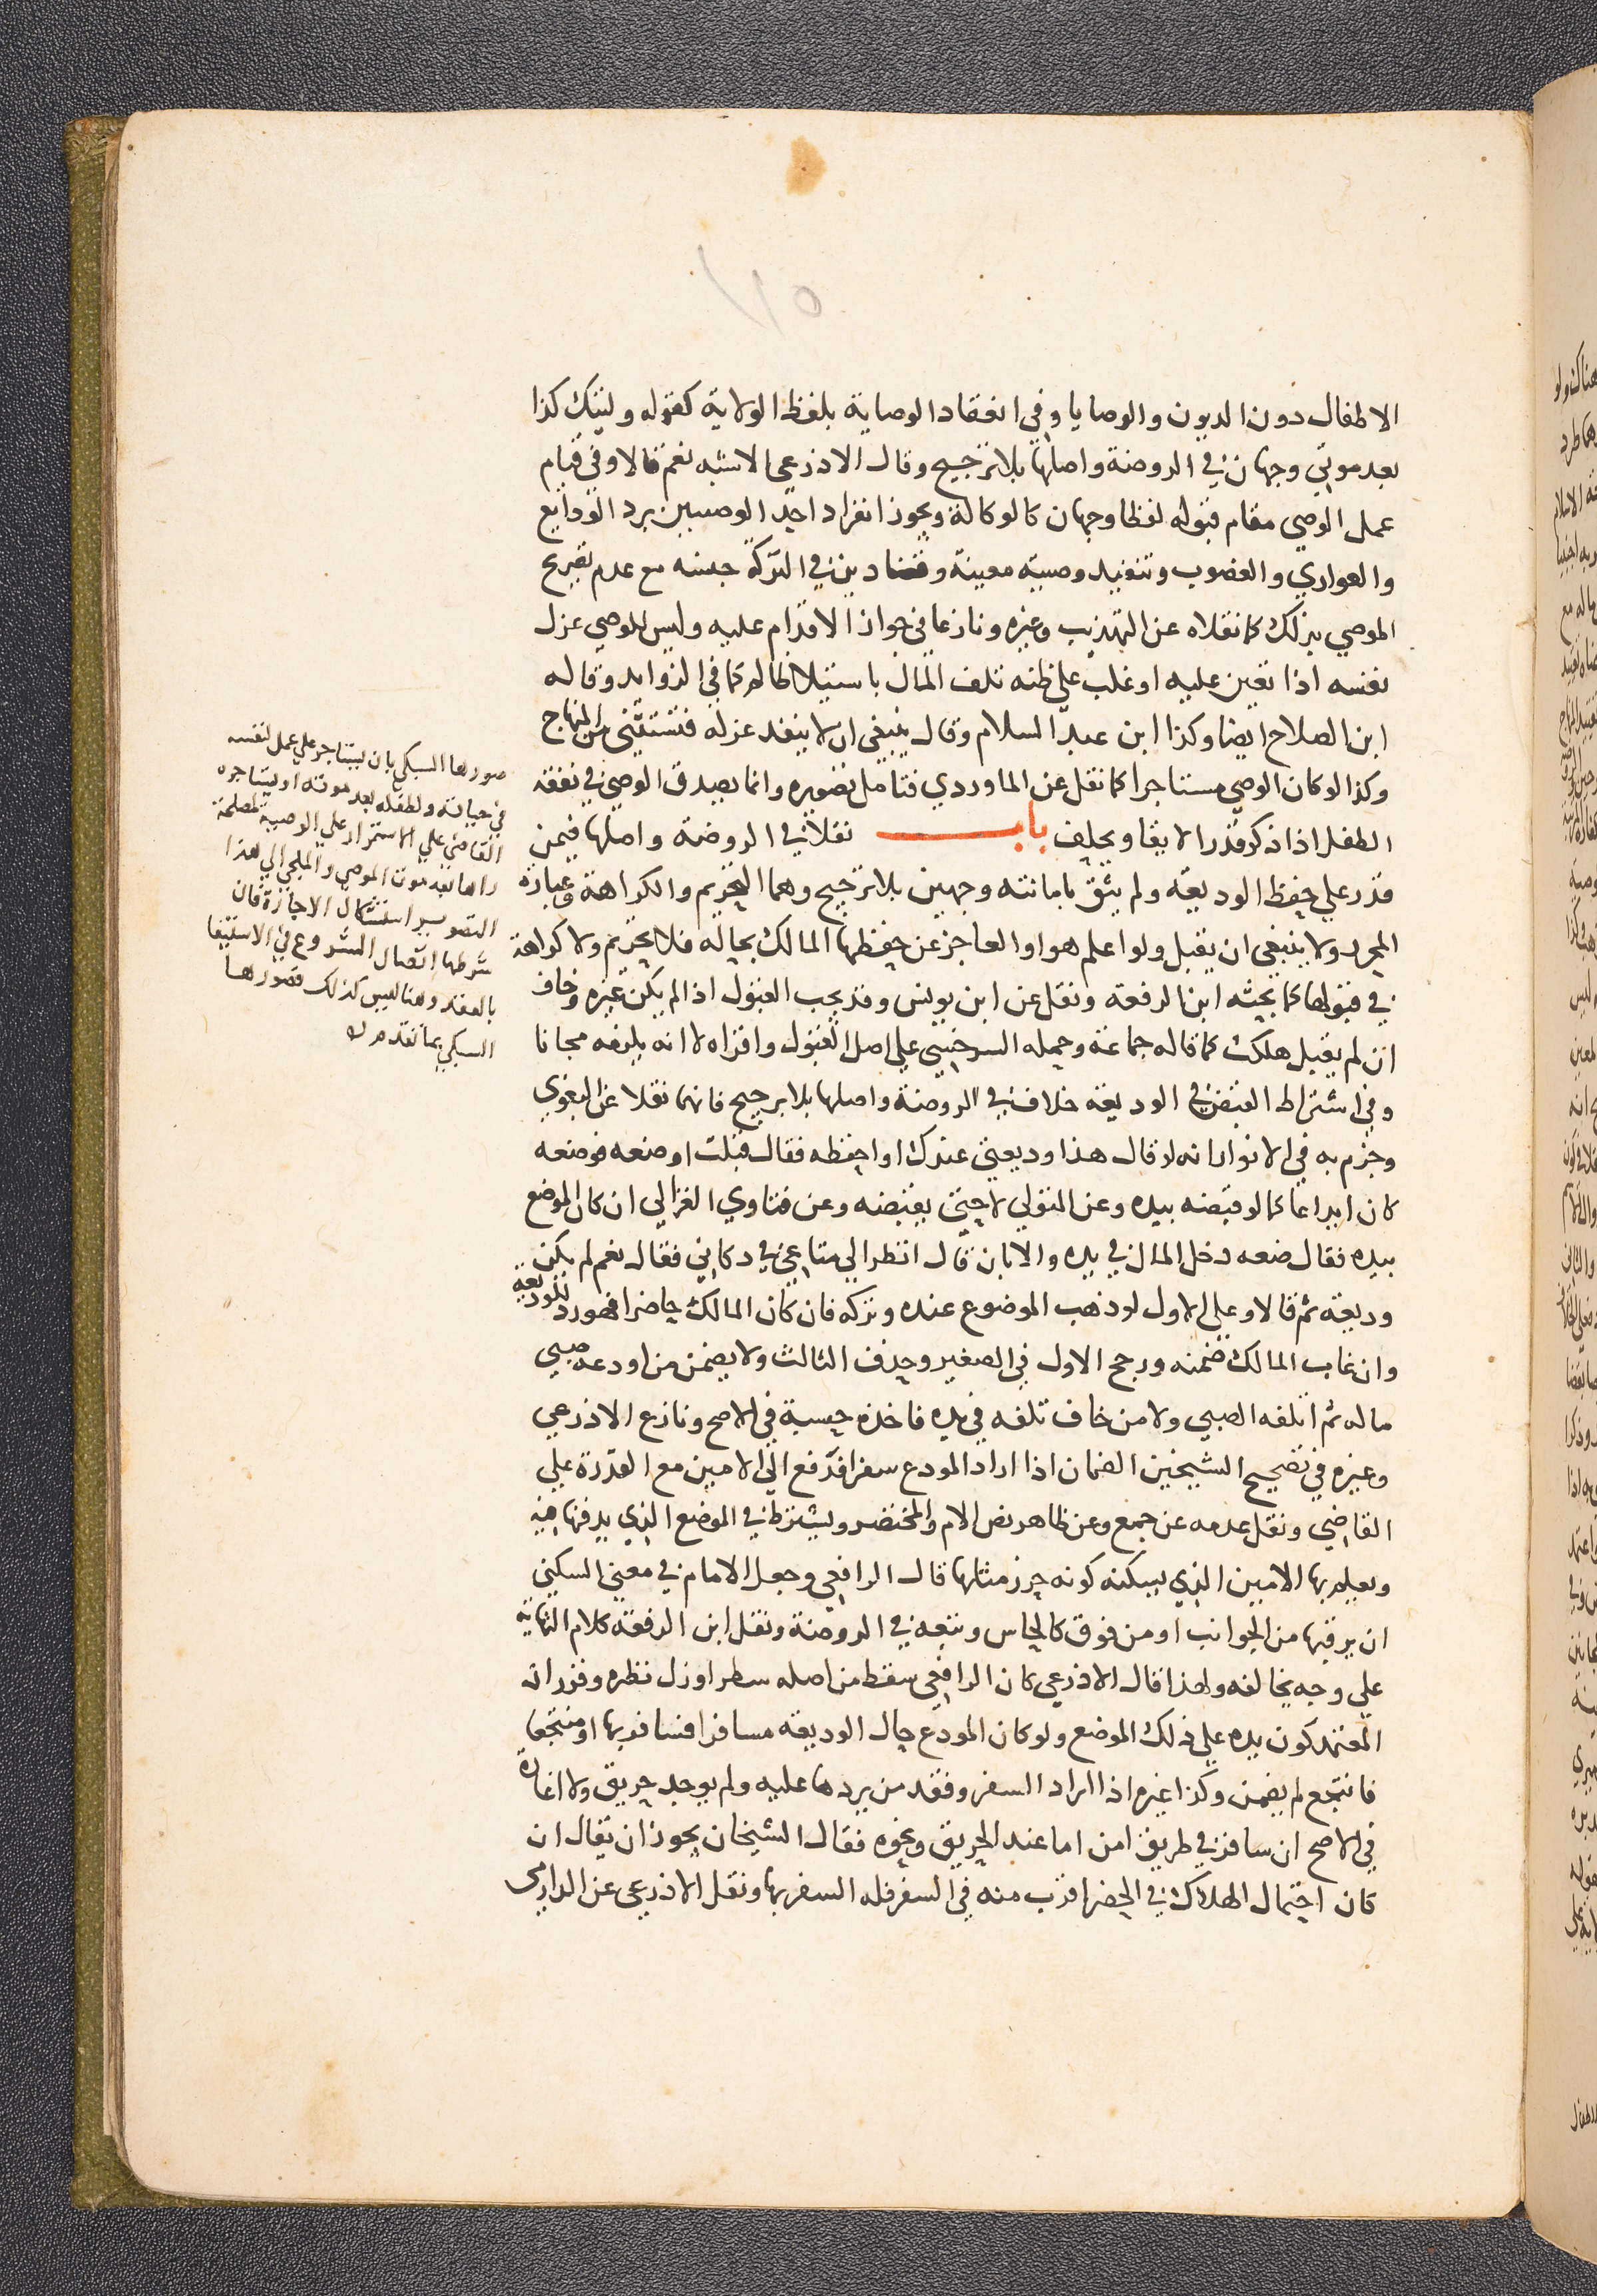 الاطفال دون الديون والوصايا وفي انعقاد الوصاية بلفظ الولاية كقوله وليتك كذا
بعد موتي وجهان في الروضة واصلها بلا ترجيح وقال الاذرعي الاشبه نعم قالا وفي قيام
عمل الوصي مقام قبوله لفظا وجهان كالوكالة ويجوز انفراد احد الوصيين برد الودايع
والعواري والغصوب وتنفيذ وصية معينة وقضا دين في التركة جنسه مع عدم تصريح
الموصي بذلك كما نقلاه عن التهذيب وغيره ونازعا في جواز الاقدام عليه وليس للوصي عزل
نفسه اذا تعين عليه او غلب علي ظنه تلف المال باستيلا ظالم كما في الزوايد وقاله
ابن الصلاح ايضا وكذا ابن عبد السلام وقال ينبغي ان لا ينفذ عزله فتستثني من المنهاج
وكذا لو كان الوصي مستاجرا كما نقل عن الماوردي فتامل تصويره وانما يصدق الوصي في نفقة
الطفل اذا ذكر قدرا لايقا ويحلف باب نقلا في الروضة واصلها فيمن
قدر علي حفظ الوديعة ولم يثق بامانته وجهين بلا ترجيح وهما التحريم والكراهة وعبارة
المحرر ولا ينبغي ان يقبل ولو اعلم هو او العاجز عن حفظها المالك بحاله فلا يحرم ولا كراهة
في قبولها كما بحثه ابن الرفعة ونقل عن ابن يونس وقد يجب القبول اذا لم يكن غيره وخاف
ان لم يقبل هلكت كما قاله جماعة وحمله السرخسي علي اصل القبول واقراه لا انه يلزمه مجانا
وفي اشتراط القبض في الوديعة خلاف في الروضة واصلها بلا ترجيح فانهما نقلا عن البغوي
وجزم به في الانوار انه لو قال هذا وديعتي عندك او احفظه فقال قبلت او ضعه فوضعه
كان ايداعا كما لو قبضه بيده وعن المتولي لا حتي يقبضه وعن فتاوي الغزالي ان كان الموضع
بيده فقال ضعه دخل المال في يده والا بان قال انظر الي متاعي في دكاني فقال نعم لم يكن
وديعة ثم قالا وعلي الاول لو ذهب الموضوع عنده وتركه فان كان المالك حاضرا فهو رد للوديعة
وان غاب المالك ضمنه ورجح الاول في الصغير وحذف الثالث ولا يضمن من اودعه صبي
ماله ثم اتلفه الصبي ولا من خاف تلفه في يده فاخذه حسبة في الاصح ونازع الاذرعي
وغيره في تصحيح الشيخين الضمان اذا اراد المودع سفرا فدفع الي الامين مع القدرة علي
القاضي ونقل عدمه عن جمع وعن ظاهر نص الام والمختصر ويشترط في الموضع الذي يدفنها فيه
ويعلم بها الامين الذي يسكنه كونه حرز مثلها قال الرافعي وجعل الامام في معني السكني
ان يرقبها من الجوانب او من فوق كالحارس وتبعه في الروضة ونقل ابن الرفعة كلام النهاية
علي وجه يخالفه ولهذا قال الاذرعي كان الرافعي سقط من اصله سطر او زل نظره وقرر ان
المعتمد كون يده علي ذلك الموضع ولو كان المودع حال الوديعة مسافرا فسافر بها او منتجعا
فانتجع لم يضمن وكذا غيره اذا اراد السفر وفقد من يردها عليه ولم يوجد حريق ولا اغارة
في الاصح ان سافر في طريق امن اما عند الحريق ونحوه فقال الشيخان يجوز ان يقال ان
كان احتمال الهلاك في الحضر اقرب منه في السفر فله السفر بها ونقل الاذرعي عن الدارمي
صورها السبكي بان يستاجر علي عمل لنفسه
في حياته ولطفله بعد موته او يستاجره
القاضي علي الاستمرار علي الوصية لمصلحة
راها بعد موت الموصي والملجي الي هذا
التصوير استشكال الاجارة فان
شرطها اتصال الشروع في الاستيفا
بالعقد وهنا ليس كذلك فصورها
السبكي بما تقدم